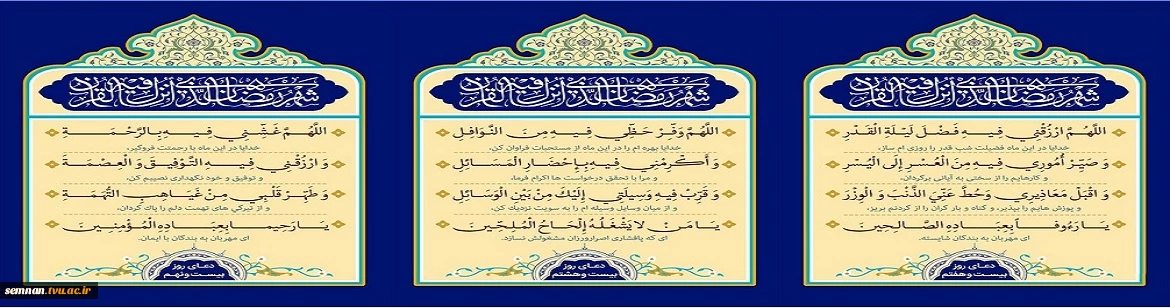 شهر رمضان الذي أنزل فيه القرآن
اللَّهُمَّ ارْزُقْنِي فِيهِ فَضْلَ لَيْلَةِ الْقَدْرِ
خدایا در این ماه فضیلت شب قدر را روزی ام ساز،
وَ صَيِّرْ أُمُورِي فِيهِ مِنَ الْعُسْرِ إِلَى الْيُسْرِ
و کارهایم را از سختی به آسانی برگردان،
وَ اقْبَلْ مَعَاذِيرِي وَ حُطَّ عَنِّيَ الذَّنْبَ وَ الْوِزْرَ
و پوزش هایم را بپذیر، و گناه و بار گران را از گردنم بریز،
يَا رَءُوفاً بِعِبَادِهِ الصَّالِحِينَ
ای مهربان به بندگان شایسته.
دعای روز
بیست و هفتم
شهر رمضان الذي أنزل فيه القرآن
اللَّهُمَّ وَفِّرْ حَظِّي فِيهِ مِنَ النَّوَافِلِ
خدایا بهره ام را در این ماه از مستحبات فراوان کن،
وَ أَكْرِمْنِي فِيهِ بِإِحْضَارِ الْمَسَائِلِ
و مرا با تحقق درخواست ها اکرام فرما،
وَ قَرِّبْ فِيهِ وَسِيلَتِي إِلَيْكَ مِنْ بَيْنِ الْوَسَائِلِ
و از میان وسایل وسیله ام را به سویت نزدیک کن،
يَا مَنْ لَا يَشْغَلُهُ إِلْحَاحُ الْمُلِحِّينَ
ای که پافشاری اصرارورزان مشغولش نسازد.
دعای روز
بیست و هشتم
شهر رمضان الذي أنزل فيه القرآن
اللَّهُمَّ غَشِّنِي فِيهِ بِالرَّحْمَةِ
خدایا در این ماه با رحمتت فروگیر،
وَ ارْزُقْنِي فِيهِ التَّوْفِيقَ وَ الْعِصْمَةَ
و توفیق و خود نگهداری نصیبم کن،
وَ طَهِّرْ قَلْبِي مِنْ غَيَاهِبِ التُّهَمَةِ
و از تیرگی های تهمت دلم را پاک گردان،
يَا رَحِيماً بِعِبَادِهِ الْمُؤْمِنِينَ
ای مهربان به بندگان با ایمان.
دعای روز
بیست و نهم
semnan.tvu.ac.ir